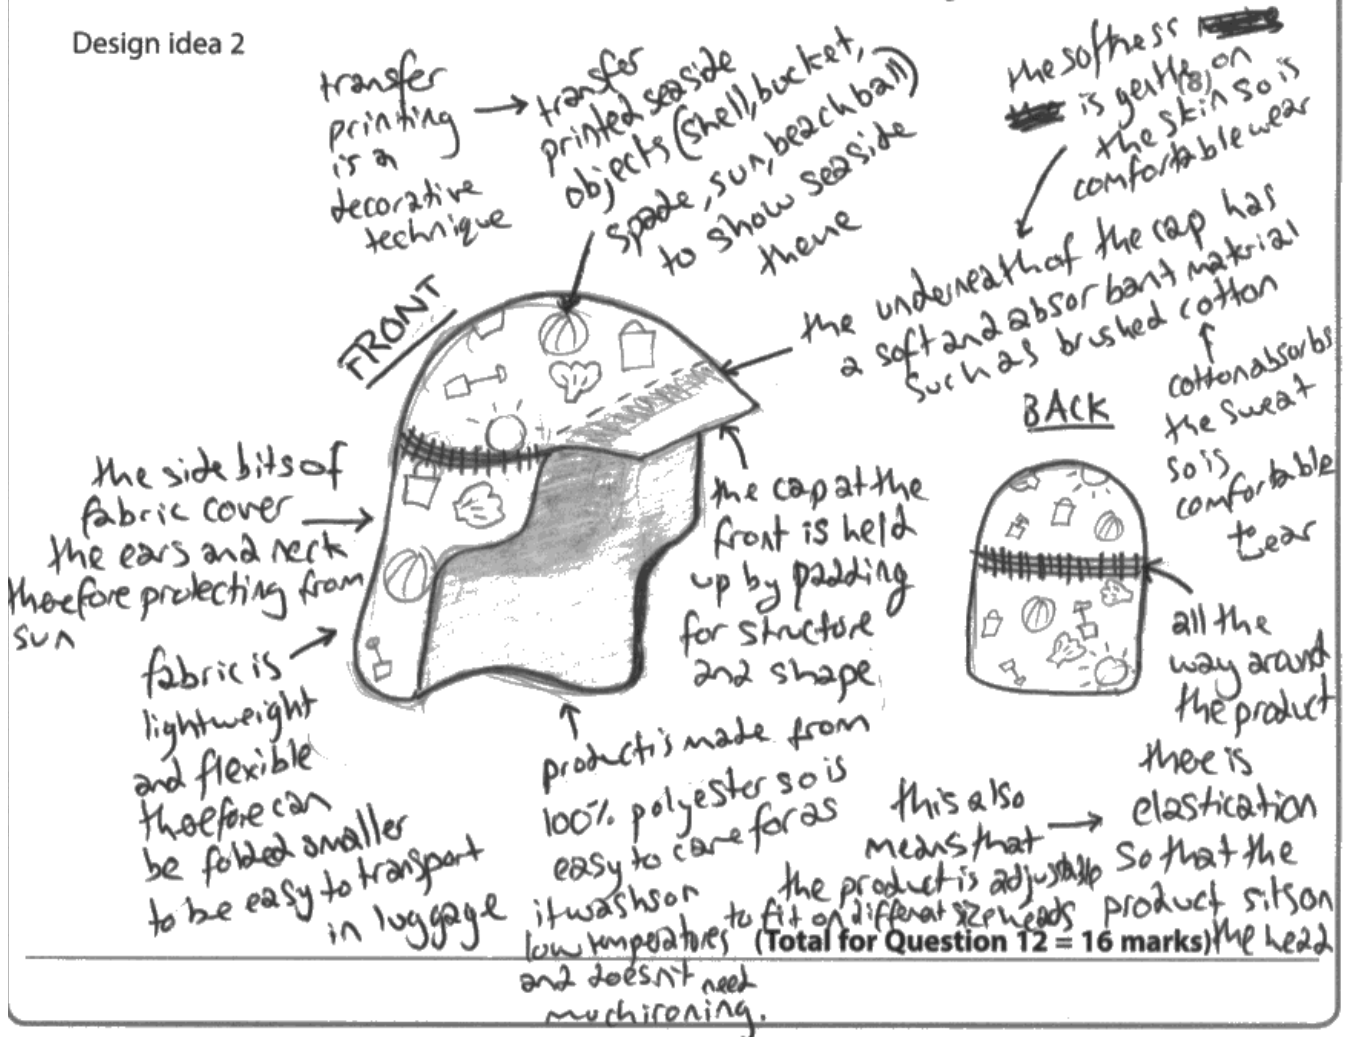 Design idea 2
transfer
printing
is a
decorative
technique
transfer
printed seaside
objects (shell, bucket,
spade, sun, beachball)
to show seaside
theme
the softness
is gentle on
(8)
the skin so is
comfortable wear
the underneath of the cap has
a soft and absorbant material
such as brushed cotton
cotton absorbs
the sweat
so is
comfortable
wear
FRONT
BACK
the side bits of
fabric cover
the ears and neck
therefore protecting from
sun
the cap at the
front is held
up by padding
for structure
and shape
fabric is
lightweight
and flexible
therefore can
be folded smaller
to be easy to transport
in luggage
product is made from
100% polyester so is
easy to care for as
it washs on
low temperatures
and doesn't need
much ironing.
all the
way around
the product
there is
elastication
so that the
product sits on
the head
this also
means that
the product is adjustable
to fit on different size heads
(Total for Question 12 = 16 marks)